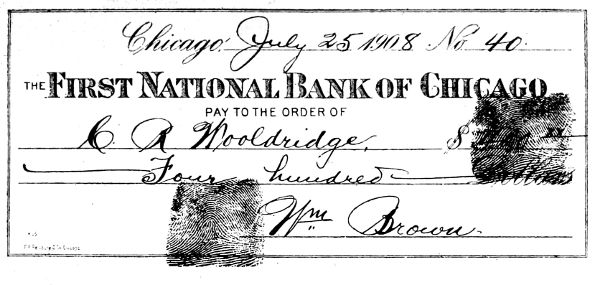 Chicago, July 25 1908 No 40.
THE FIRST NATIONAL BANK OF CHICAGO
PAY TO THE ORDER OF
C R Wooldridge, $400
Four hundred Dollars
Wm Brown.